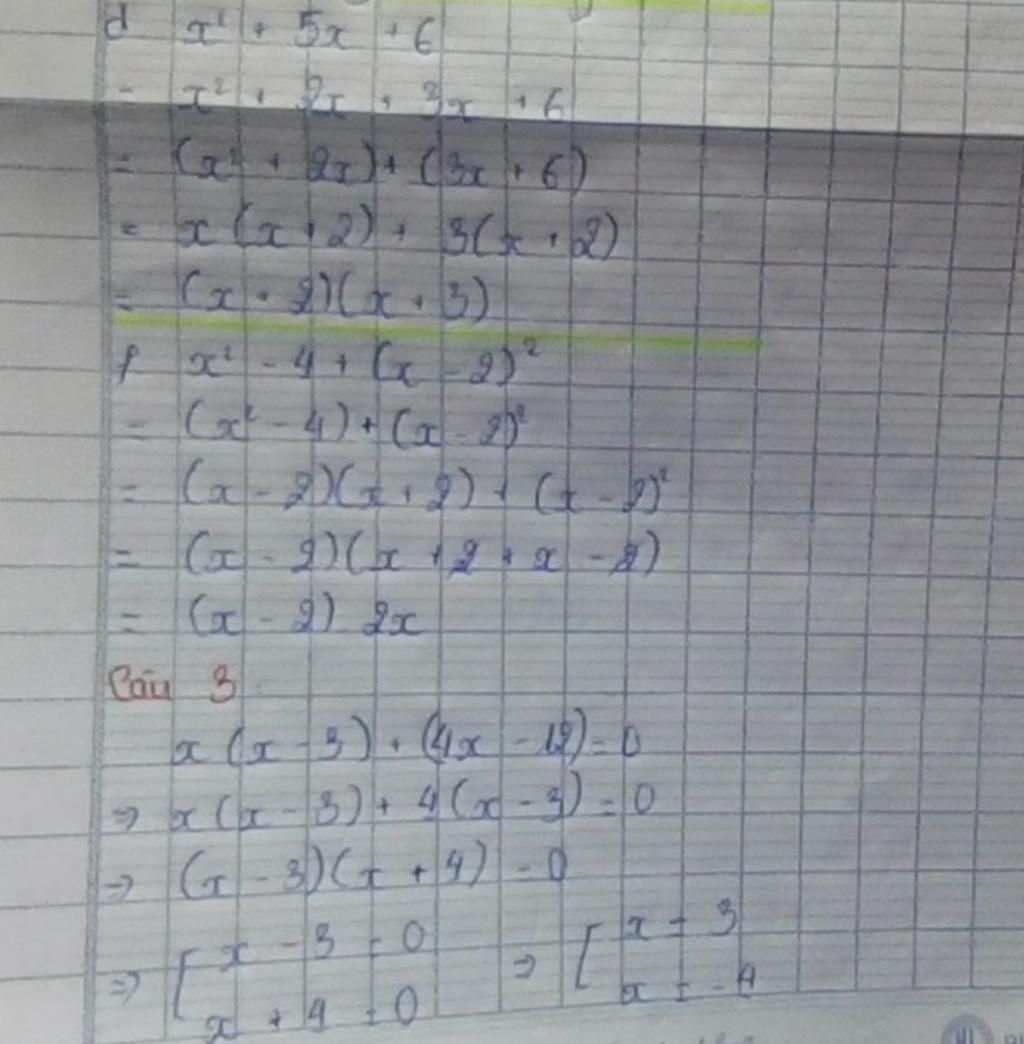 d x² + 5x + 6
= x² + 2x + 3x + 6
= (x² + 2x) + (3x + 6)
= x (x + 2) + 3(x + 2)
= (x + 2)(x + 3)
f x² - 4 + (x - 2)²
= (x² - 4) + (x - 2)²
= (x - 2)(x + 2) + (x - 2)²
= (x - 2)(x + 2 + x - 2)
= (x - 2) 2x
Câu 3
x (x - 3) + (4x - 12) = 0
⇒ x (x - 3) + 4(x - 3) = 0
⇒ (x - 3)(x + 4) = 0
⇒ [ x - 3 = 0 ⇒ [ x = 3
x + 4 = 0 x = -4